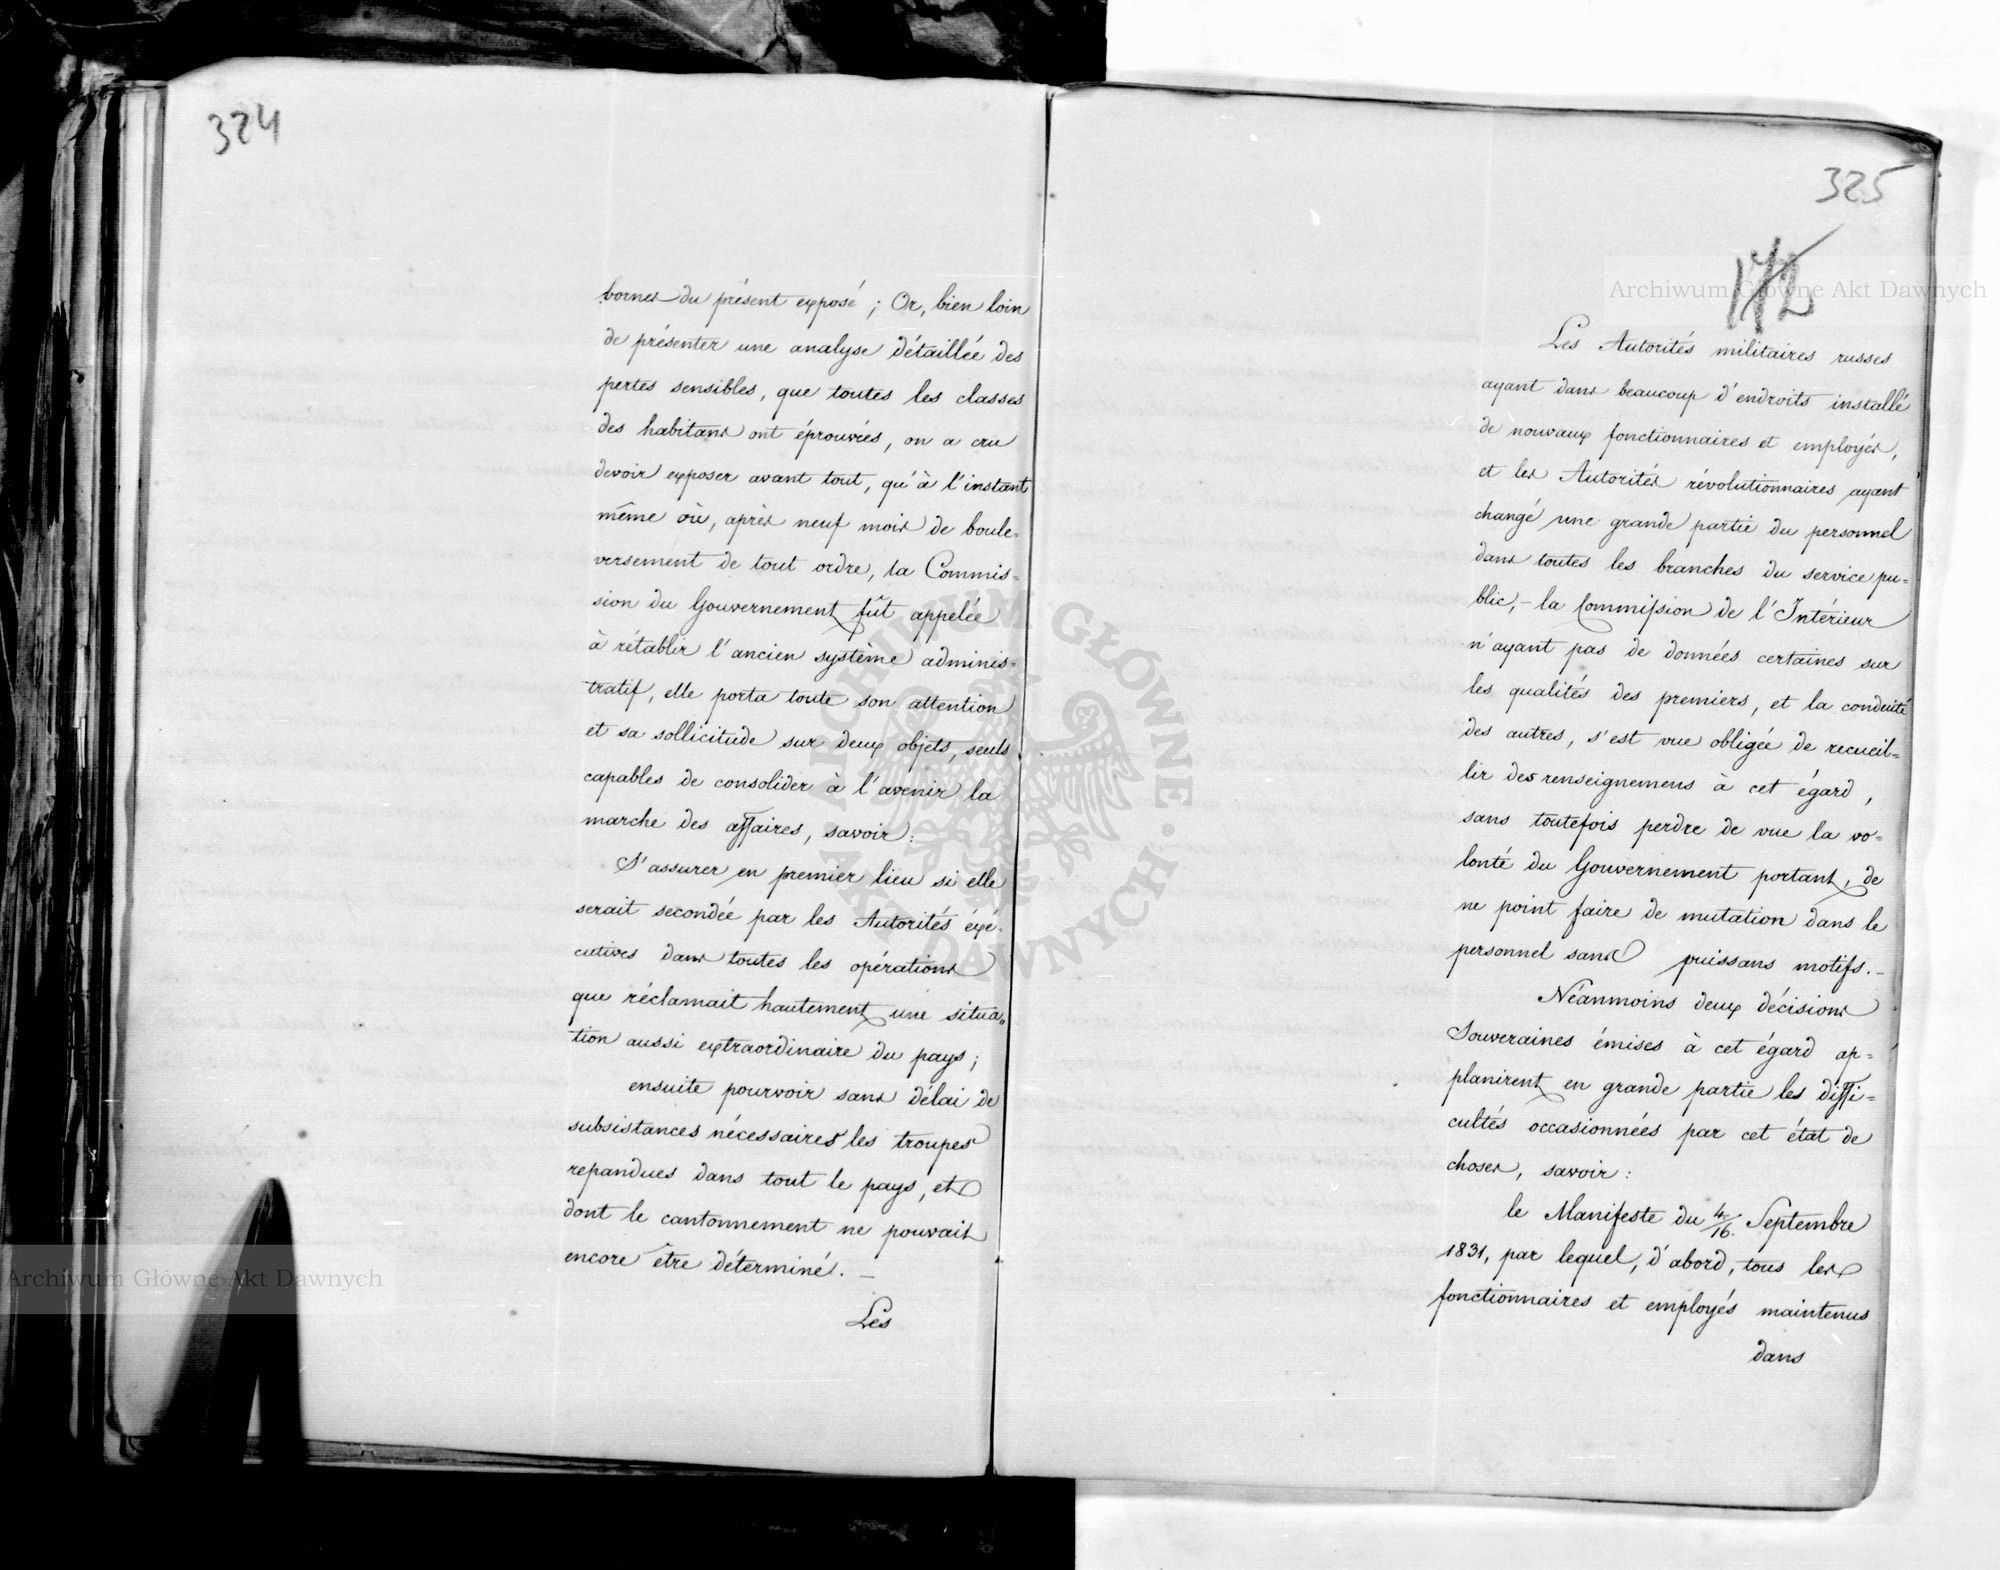 324
bornes du présent exposé ; Or, bien loin
de présenter une analyse détaillée des
pertes sensibles, que toutes les classes
des habitans ont éprouvées, on a cru
devoir exposer avant tout, qu'à l'instant
même où, après neuf mois de boule=
versement de tout ordre, la Commis=
sion du Gouvernement fût appelée
à rétablir l'ancien système adminis=
tratif, elle porta toute son attention
et sa sollicitude sur deux objets, seuls
capables de consolider à l'avenir la
marche des affaires, savoir:
S'assurer en premier lieu si elle
serait secondée par les Autorités éxé=
cutives dans toutes les opérations
que réclamait hautement une situa=
tion aussi extraordinaire du pays;
ensuite pourvoir sans délai de
subsistances nécessaires les troupes
repandues dans tout le pays, et
dont le cantonnement ne pouvait
encore être déterminé. —
Les
325
172
Les Autorités militaires russes
ayant dans beaucoup d'endroits installé
de nouvaux fonctionnaires et employés,
et les Autorités révolutionnaires ayant
changé une grande partie du personnel
dans toutes les branches du service pu=
blic, – la Commission de l'Intérieur
n'ayant pas de données certaines sur
les qualités des premiers, et la conduite
des autres, s'est vue obligée de recueil=
lir des renseignemens à cet égard,
sans toutefois perdre de vue la vo=
lonté du Gouvernement portant, de
ne point faire de mutation dans le
personnel sans puissans motifs. –
Néanmoins deux décisions
Souveraines émises à cet égard ap=
planirent en grande partie les diffi=
cultés occasionnées par cet état de
choses, savoir:
le Manifeste du 4/16. Septembre
1831, par lequel, d'abord, tous les
fonctionnaires et employés maintenus
dans
Archiwum Główne Akt Dawnych
Archiwum Główne Akt Dawnych
ARCHIWUM GŁÓWNE AKT DAWNYCH